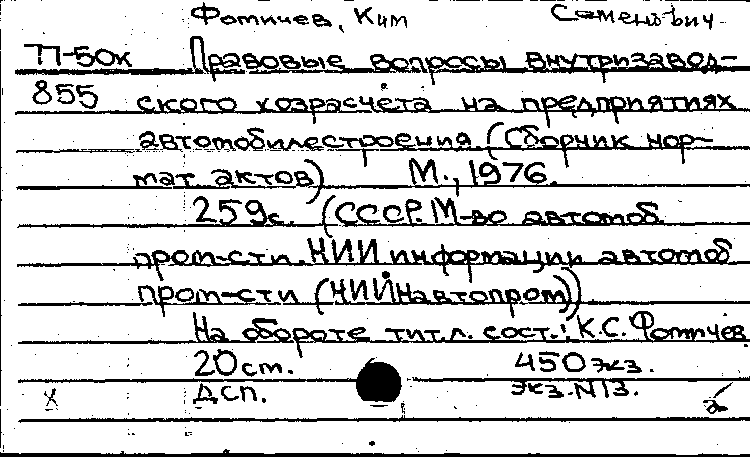 Фотичев, Ким Семенович
77-50к Правовые вопросы внутризавод-
855 ского хозрасчета на предприятиях
автомобилестроения (Сборник нор-
мат. актов) М., 1976.
259с. (СССР. М-во автомоб
пром-сти. НИИ информации автомоб
пром-сти (НИИНавтопром))
На обороте тит.л. сост.: К.С. Фотичев
20 cm. 450 экз.
х Дсп. экз. N13.